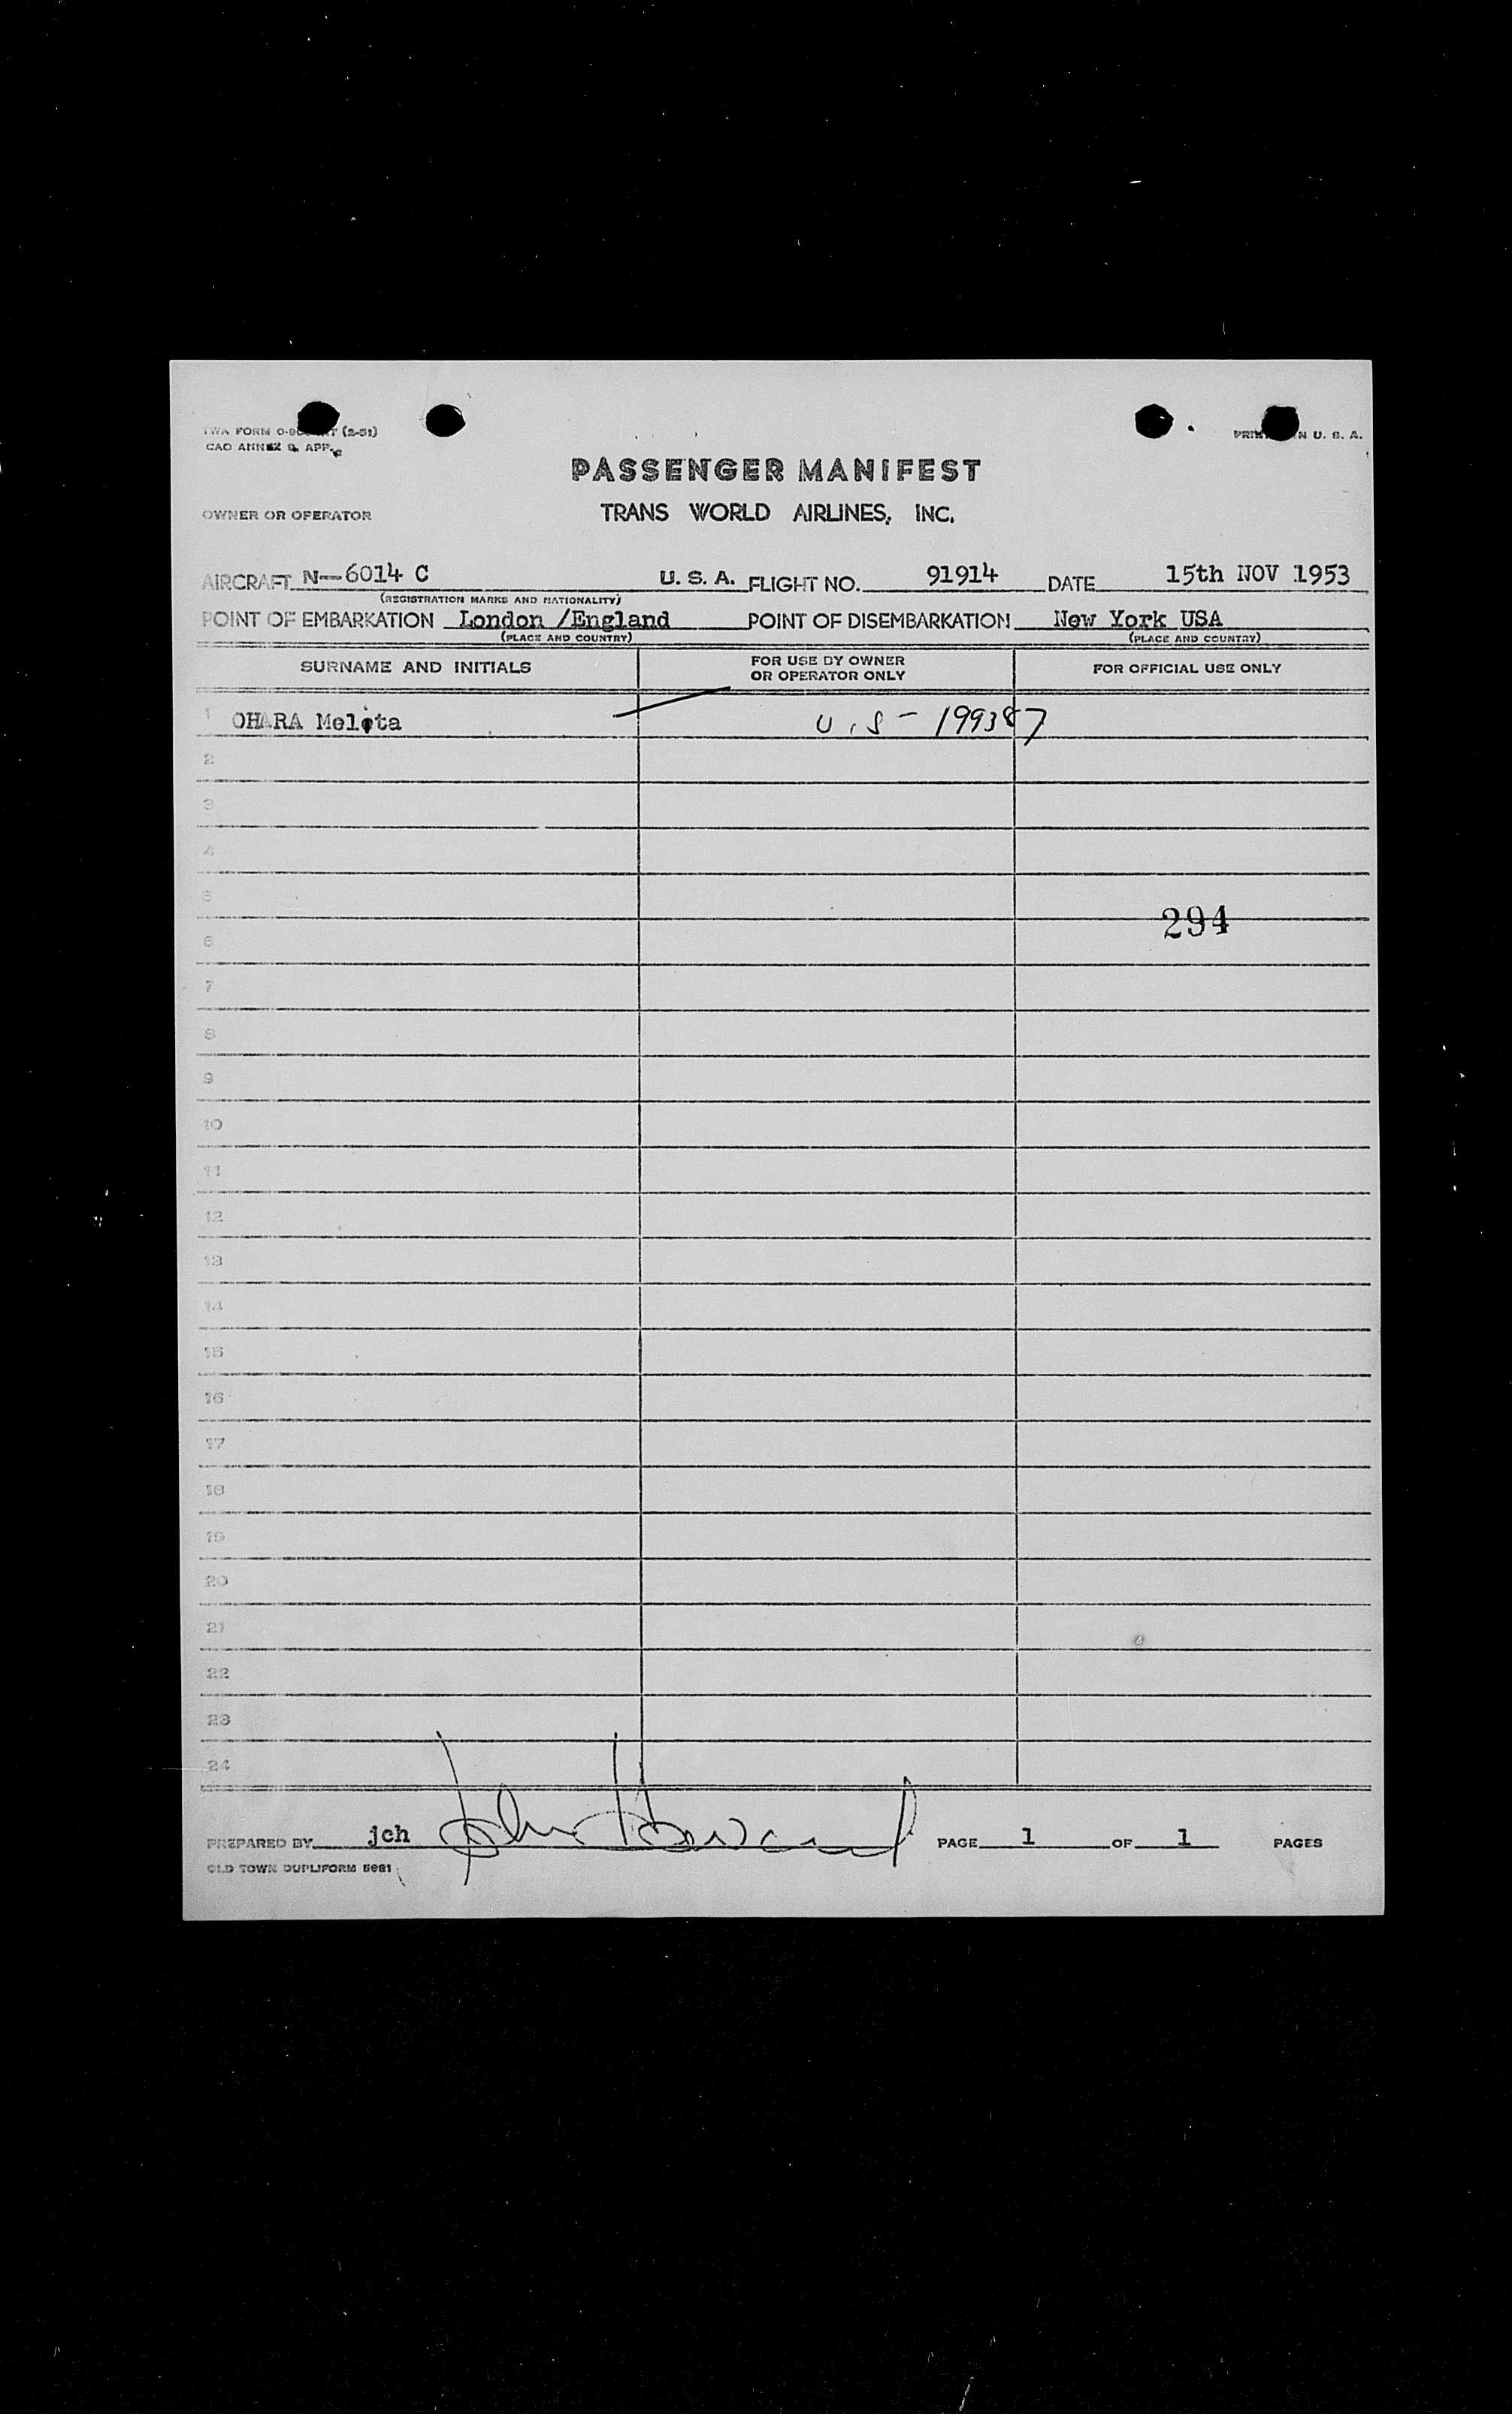 TWA FORM (2-51)
CAO ANNEX 9, APP.
PRINTED IN U. S. A.
PASSENGER MANIFEST
OWNER OR OPERATOR TRANS WORLD AIRLINES, INC.
AIRCRAFT N--6014 C U. S. A. FLIGHT NO. 91914 DATE 15th NOV 1953
(REGISTRATION MARKS AND NATIONALITY)
POINT OF EMBARKATION London /England POINT OF DISEMBARKATION New York USA
(PLACE AND COUNTRY) (PLACE AND COUNTRY)
SURNAME AND INITIALS FOR USE BY OWNER OR OPERATOR ONLY FOR OFFICIAL USE ONLY
1 OHARA U.S - 199387
2
3
4
5
294
6
7
8
9
10
11
12
13
14
15
16
17
18
19
20
21
22
23
24
PREPARED BY jch John Howard PAGE 1 OF 1 PAGES
OLD TOWN DUPLIFORM 5981